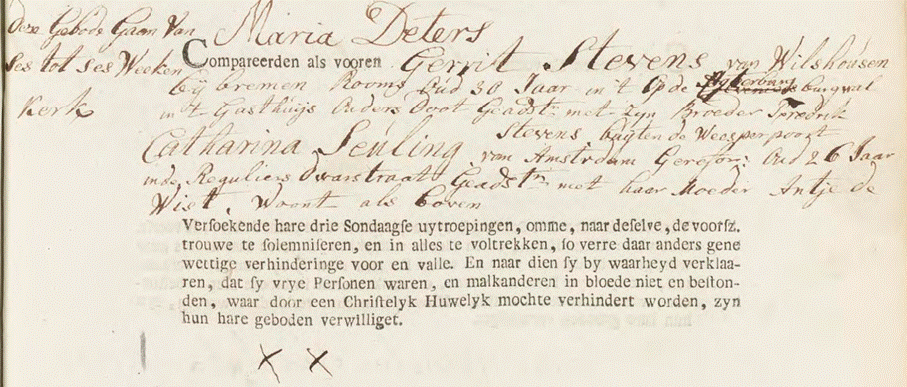 Maria Deters
Deze Gebode Gaan Van
Ses tot ses Weeken
Kerk
Compareerden als vooren Gerrit Stevens van Wilshousen
bij bremen Rooms Oud 30 Jaar in 't Op de Agterburg burgwal
in 't Gasthuijs Ouders Doot Geadst: met zyn Broeder Fredrik
Stevens buyten de Weesper poort
Catharina Seuling van Amstrdam Gerefor: Oud 26 Jaar
inde Reguliers Dwarstraat Geadst: met haar Moeder Antje de
Wist, Woont als boven
Versoekende hare drie Sondaagse uytroepingen, omme, naar deselve, de voorsz.
trouwe te solemniseren, en in alles te voltrekken, so verre daar anders gene
wettige verhinderinge voor en valle. En naar dien sy by waarheyd verklaa-
ren, dat sy vrye Personen waren, en malkanderen in bloede niet en beston-
den, waar door een Christelyk Huwelyk mochte verhindert worden, zyn
hun hare geboden verwilliget.
X X